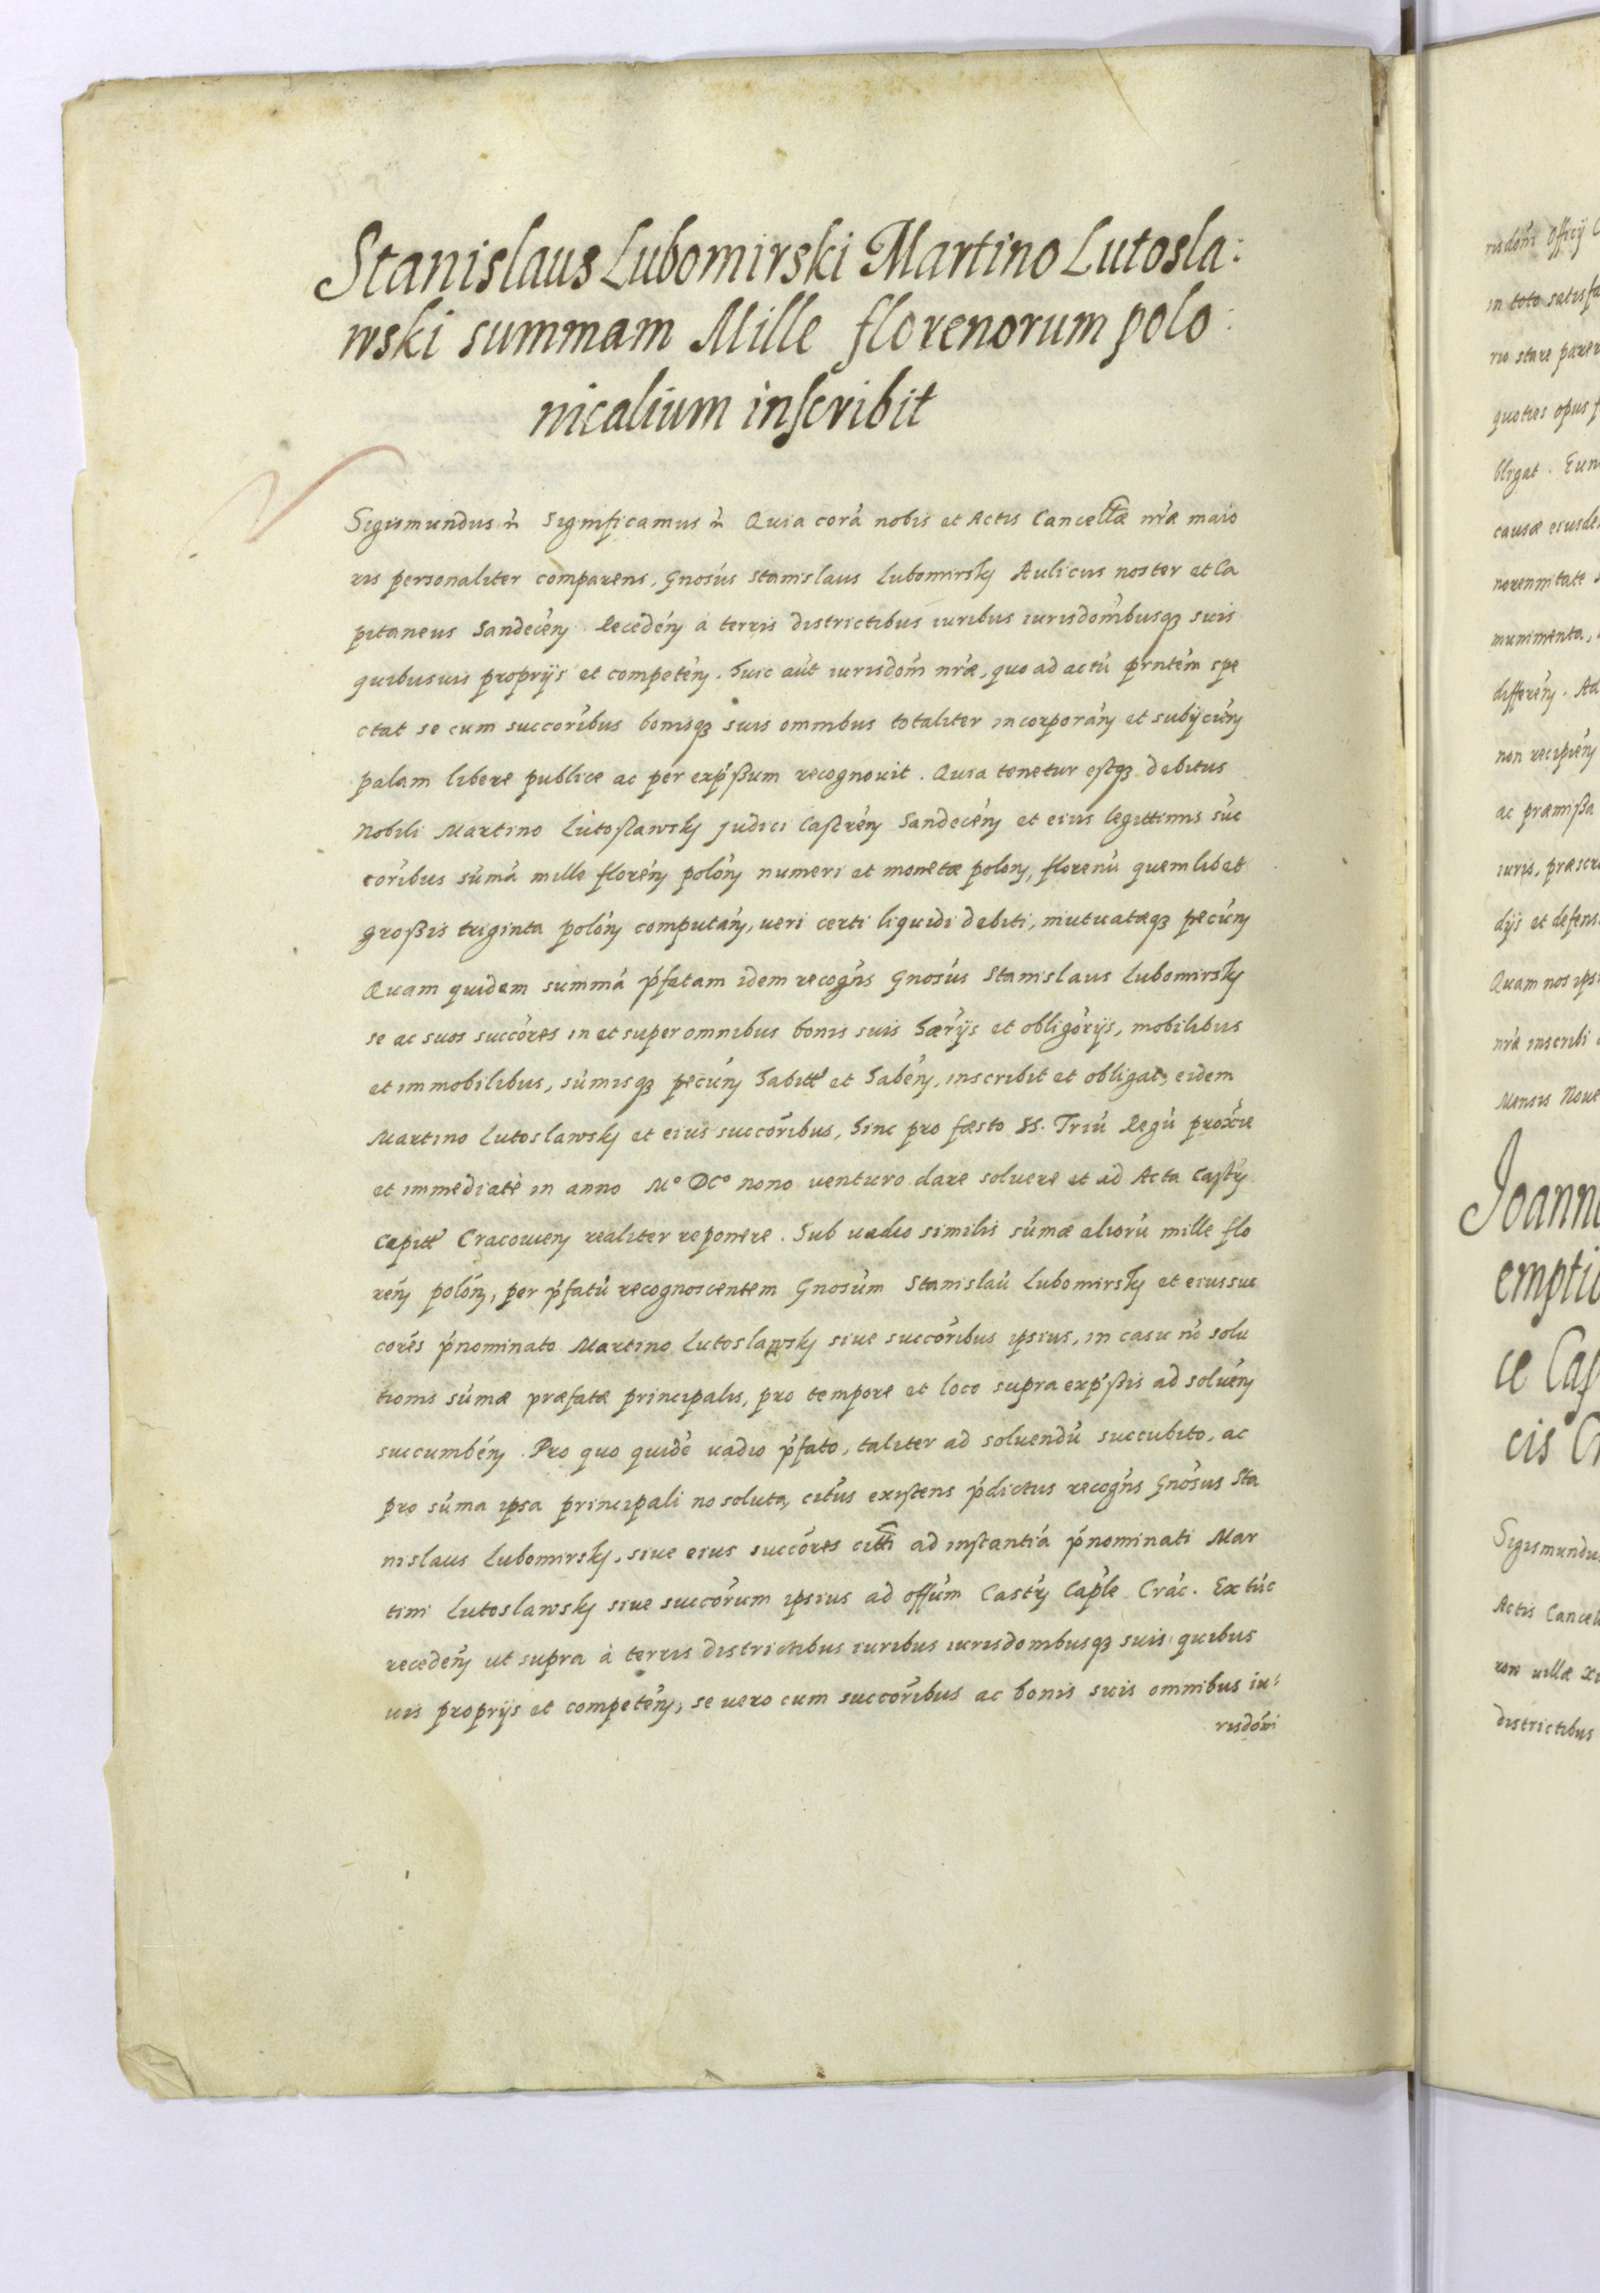 Stanislaus Lubomirski Martino Lutosla:
wski summam Mille florenorum polo:
nicalium inscribit
Sigismundus Significamus Quia corā nobis et Actis Cancellæ nræ maio
ris personaliter comparens, Gnosus Stanislaus Lubomirsky Aulicus noster et Ca
pitaneus Sandecēn Recedēn à terris districtibus iuribus iurisdombusq3 suis
quibusuis proprijs et competēn. huic aūt iurisdom nræ, quo ad actū prntēm spe
ctat se cum succoribus bonisq3 suis omnibus totaliter incorporān et subijciēn
palam libere publice ac per expssum recognouit. Quia tenetur estq3 debitus
Nobili Martino Lutoslawsky Judici Castrēn Sandecēn et eius legittimis suc
coribus sūmā mille florēn polōn numeri et monetæ polon, florenū quemlibet
großis triginta polōn computān, ueri certi liquidi debiti, mutuatæq3 pecūn
Quam quidem summā pfatam idem recogns Gnosus Stanislaus Lubomirsky
se ac suos succores in et super omnibus bonis suis hærijs et obligorijs, mobilibus
et immobilibus, sūmisq3 pecūn habitt et habēn, inscribit et obligat, eidem
Martino Lutoslawsky et eius succoribus, hinc pro fæsto SS. Triū Regū proxie
et immediatè in anno M° DC° nono uenturo dare soluere et ad Acta Castr
Capitt Cracouien realiter reponere. Sub uadio similis sūmæ aliorū mille flo
rēn polōn, per pfatū recognoscentem Gnosum Stanislaū Lubomirsky et eius suc
cores pnominato Martino Lutoslawsky siue succoribus ipsius, in casu nō solu
tionis sūmæ præfatæ principalis, pro tempore et loco supra expssis ad soluēn
succumbēn. Pro quo quidē uadio pfato, taliter ad soluendū succubito, ac
pro sūma ipsa principali no soluta, citus existens pdictus recogns Gnosus Sta
nislaus Lubomirsky, siue eius succores citti ad instantiā pnominati Mar
tini Lutoslawsky siue succorum ipsius ad offum Castr Caple Crac. Ex tūc
recedēn ut supra à terris districtibus iuribus iurisdombusq3 suis quibus
uis proprijs et competēn, se uero cum succoribus ac bonis suis omnibus iu:
risdoni
risdoni Officij
in toto satisfa
rio stare parer
quoties opus f
bligat. Eun
causæ eiusde
norennitate
munimenta,
differēn. Ad
non recipiēn
ac præmißa
iuris, præscr
dijs et defens
Quam nos ips
nræ inscribi
Mensis Noue
Joann
empti
ce Cas
cis
Sigismundus
Actis Cancel
uillæ
districtibus